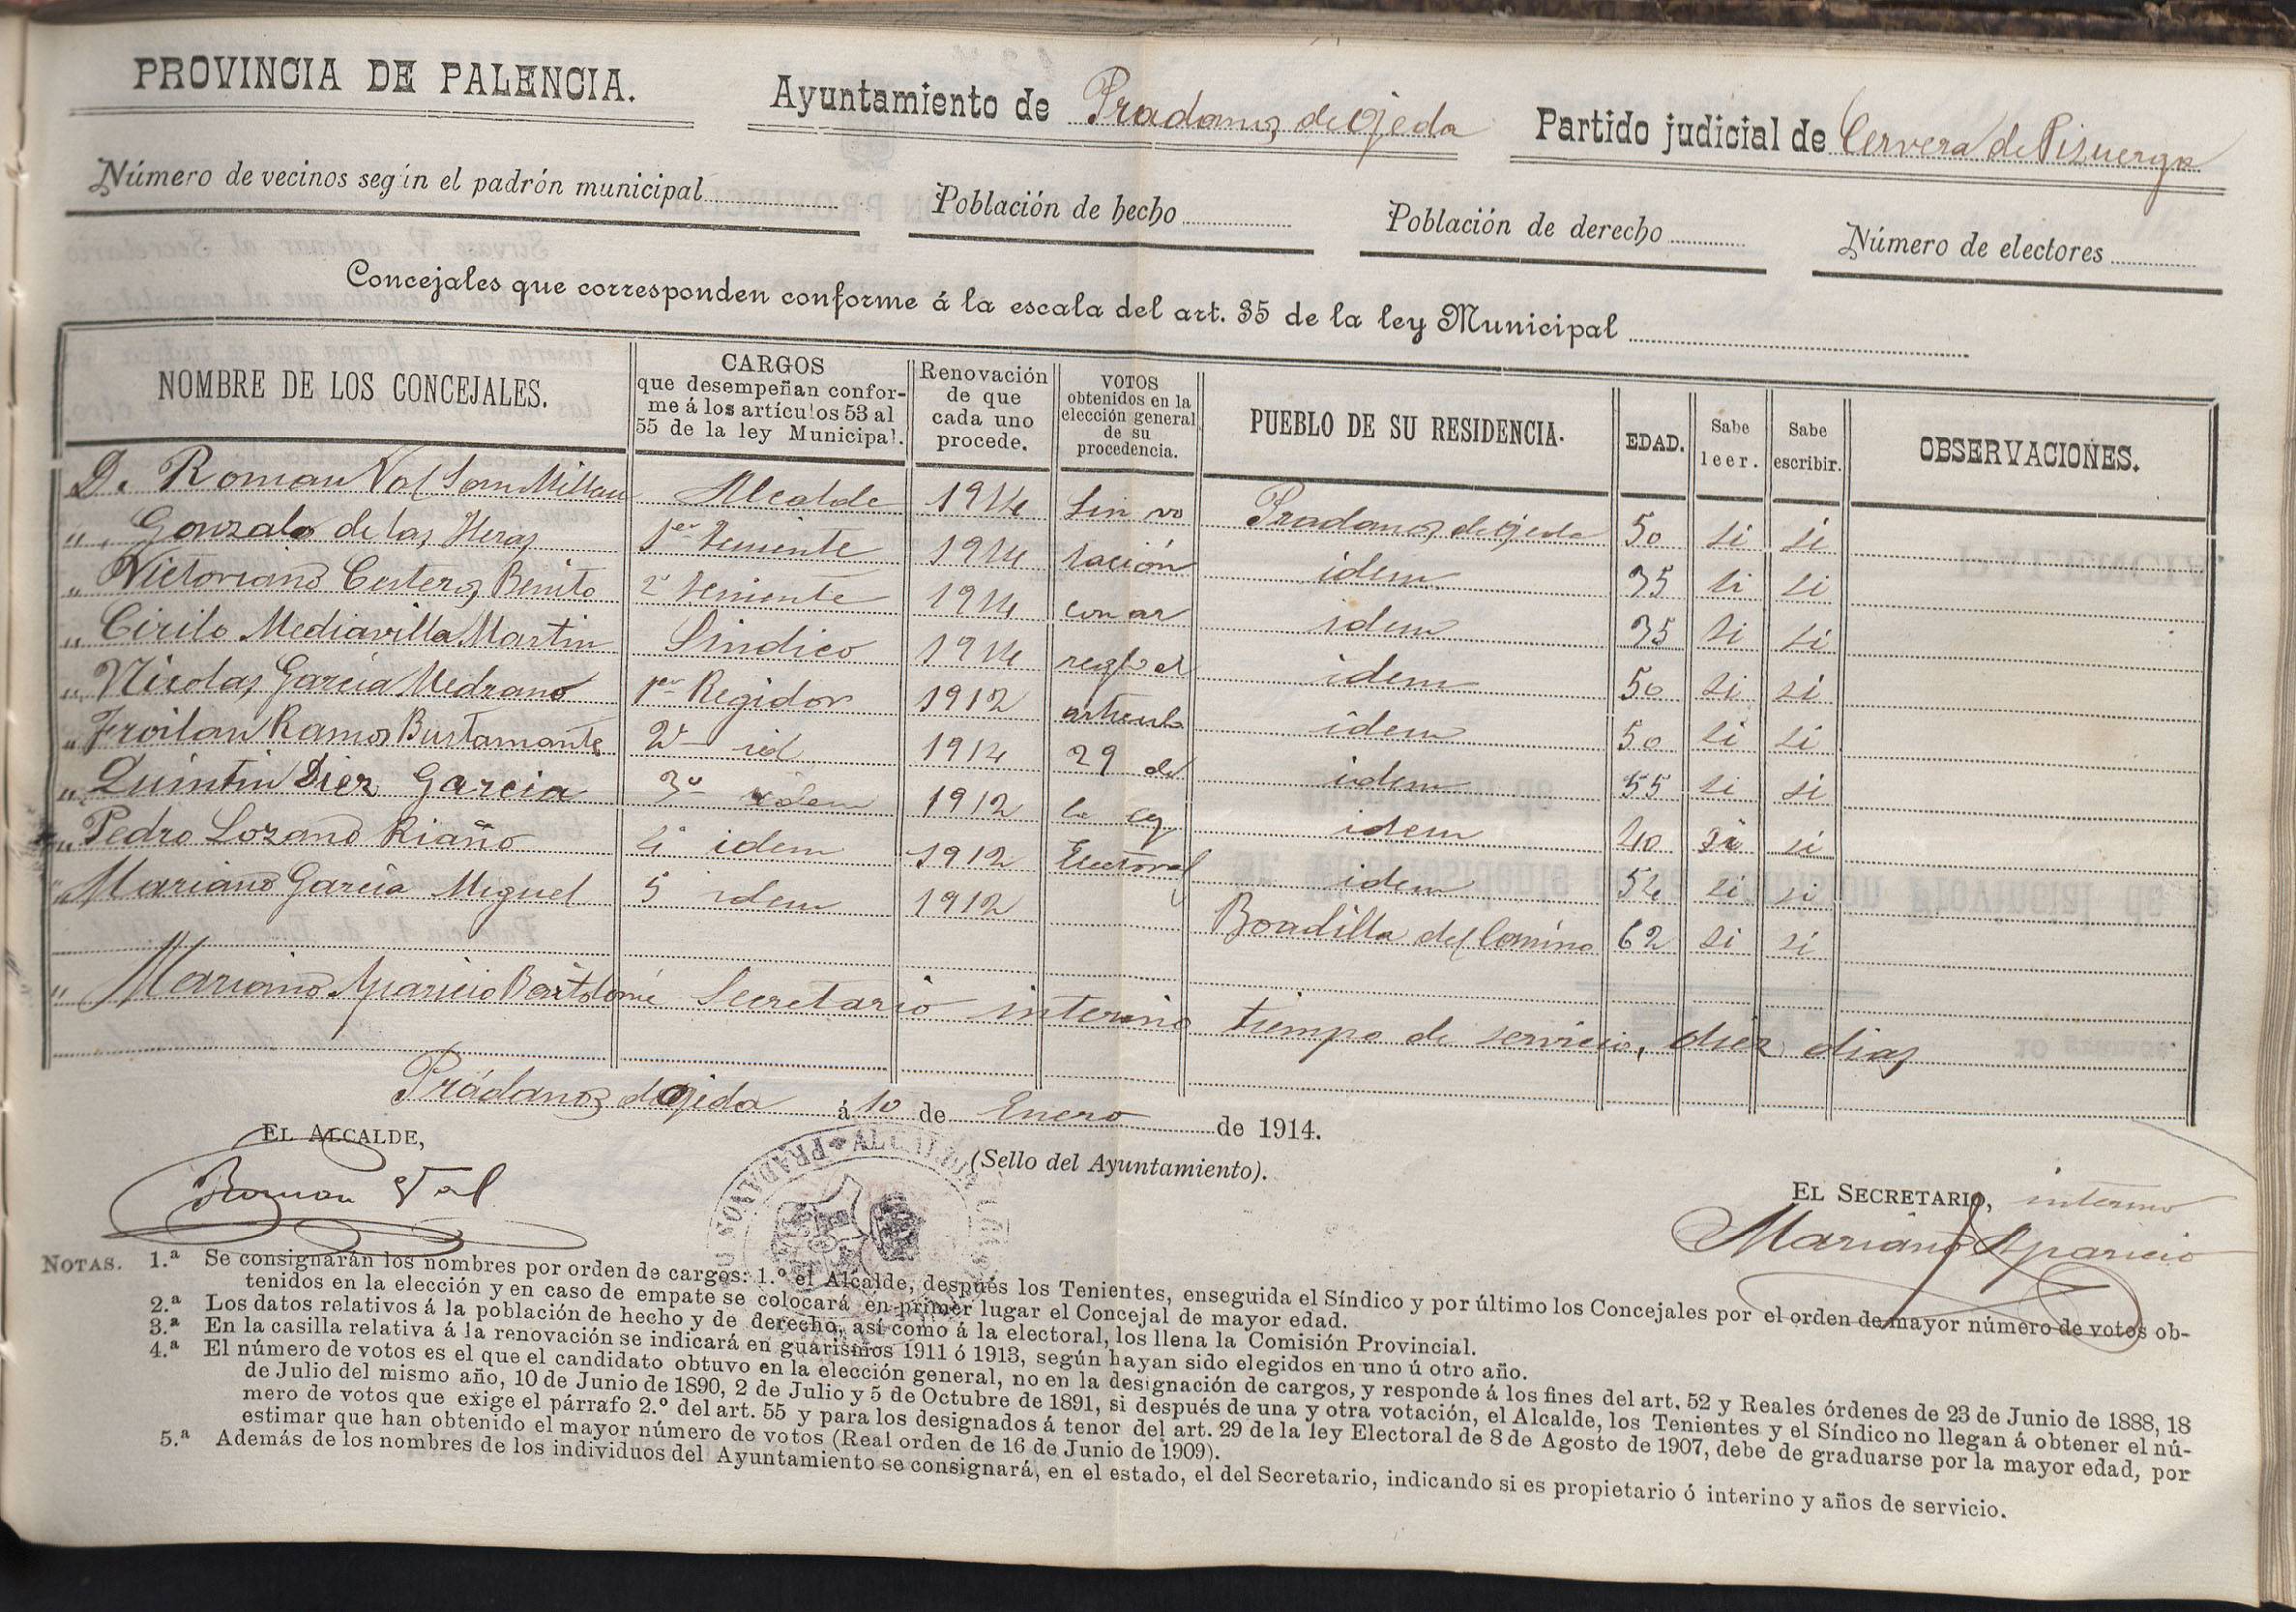 PROVINCIA DE PALENCIA.
Ayuntamiento de Pradanos de Ojeda
Partido judicial de Cervera de Pisuerga
Número de vecinos según el padrón municipal
Población de hecho
Población de derecho
Número de electores
Concejales que corresponden conforme á la escala del art. 35 de la ley Municipal
NOMBRE DE LOS CONCEJALES. CARGOS que desempeñan conforme á los artículos 53 al 55 de la ley Municipal. Renovación de que cada uno procede. VOTOS obtenidos en la elección general de su procedencia. PUEBLO DE SU RESIDENCIA. EDAD. Sabe leer. Sabe escribir. OBSERVACIONES.
D. Roman Val San Millan Alcalde 1914 Sin vo Pradanos de Ojeda 50 si si
„ Gonzalo de las Heras 1er Teniente 1914 tación idem 35 si si
„ Victoriano Cestero, Benito 2º Teniente 1914 con ar idem 35 si si
„ Cirilo Mediavilla Martin Sindico 1914 reglo al idem 50 si si
„ Nicolas Garcia Medrano 1er Regidor 1912 articulo idem 50 si si
„ Froilan Ramos Bustamante 2º id 1914 29 de idem 55 si si
„ Quintin Diez Garcia 3º idem 1912 la ley idem 40 si si
„ Pedro Lozano Riaño 4º idem 1912 Electoral idem 54 si si
„ Mariano Garcia Miguel 5 idem 1912 Boadilla del Camino 62 si si
„ Mariano Aparicio Bartolomé Secretario interino tiempo de servicio, diez dias
Prádanos de Ojeda á 10 de Enero de 1914.
EL ALCALDE,
Roman Val
(Sello del Ayuntamiento).
EL SECRETARIO, interino
Mariano Aparicio
NOTAS. 1.ª Se consignarán los nombres por orden de cargos: 1.º el Alcalde, después los Tenientes, enseguida el Síndico y por último los Concejales por el orden de mayor número de votos ob-
tenidos en la elección y en caso de empate se colocará en primer lugar el Concejal de mayor edad.
2.ª Los datos relativos á la población de hecho y de derecho, así como á la electoral, los llena la Comisión Provincial.
3.ª En la casilla relativa á la renovación se indicará en guarismos 1911 ó 1913, según hayan sido elegidos en uno ú otro año.
4.ª El número de votos es el que el candidato obtuvo en la elección general, no en la designación de cargos, y responde á los fines del art. 52 y Reales órdenes de 23 de Junio de 1888, 18
de Julio del mismo año, 10 de Junio de 1890, 2 de Julio y 5 de Octubre de 1891, si después de una y otra votación, el Alcalde, los Tenientes y el Síndico no llegan á obtener el nú-
mero de votos que exige el párrafo 2.º del art. 55 y para los designados á tenor del art. 29 de la ley Electoral de 8 de Agosto de 1907, debe de graduarse por la mayor edad, por
estimar que han obtenido el mayor número de votos (Real orden de 16 de Junio de 1909).
5.ª Además de los nombres de los individuos del Ayuntamiento se consignará, en el estado, el del Secretario, indicando si es propietario ó interino y años de servicio.